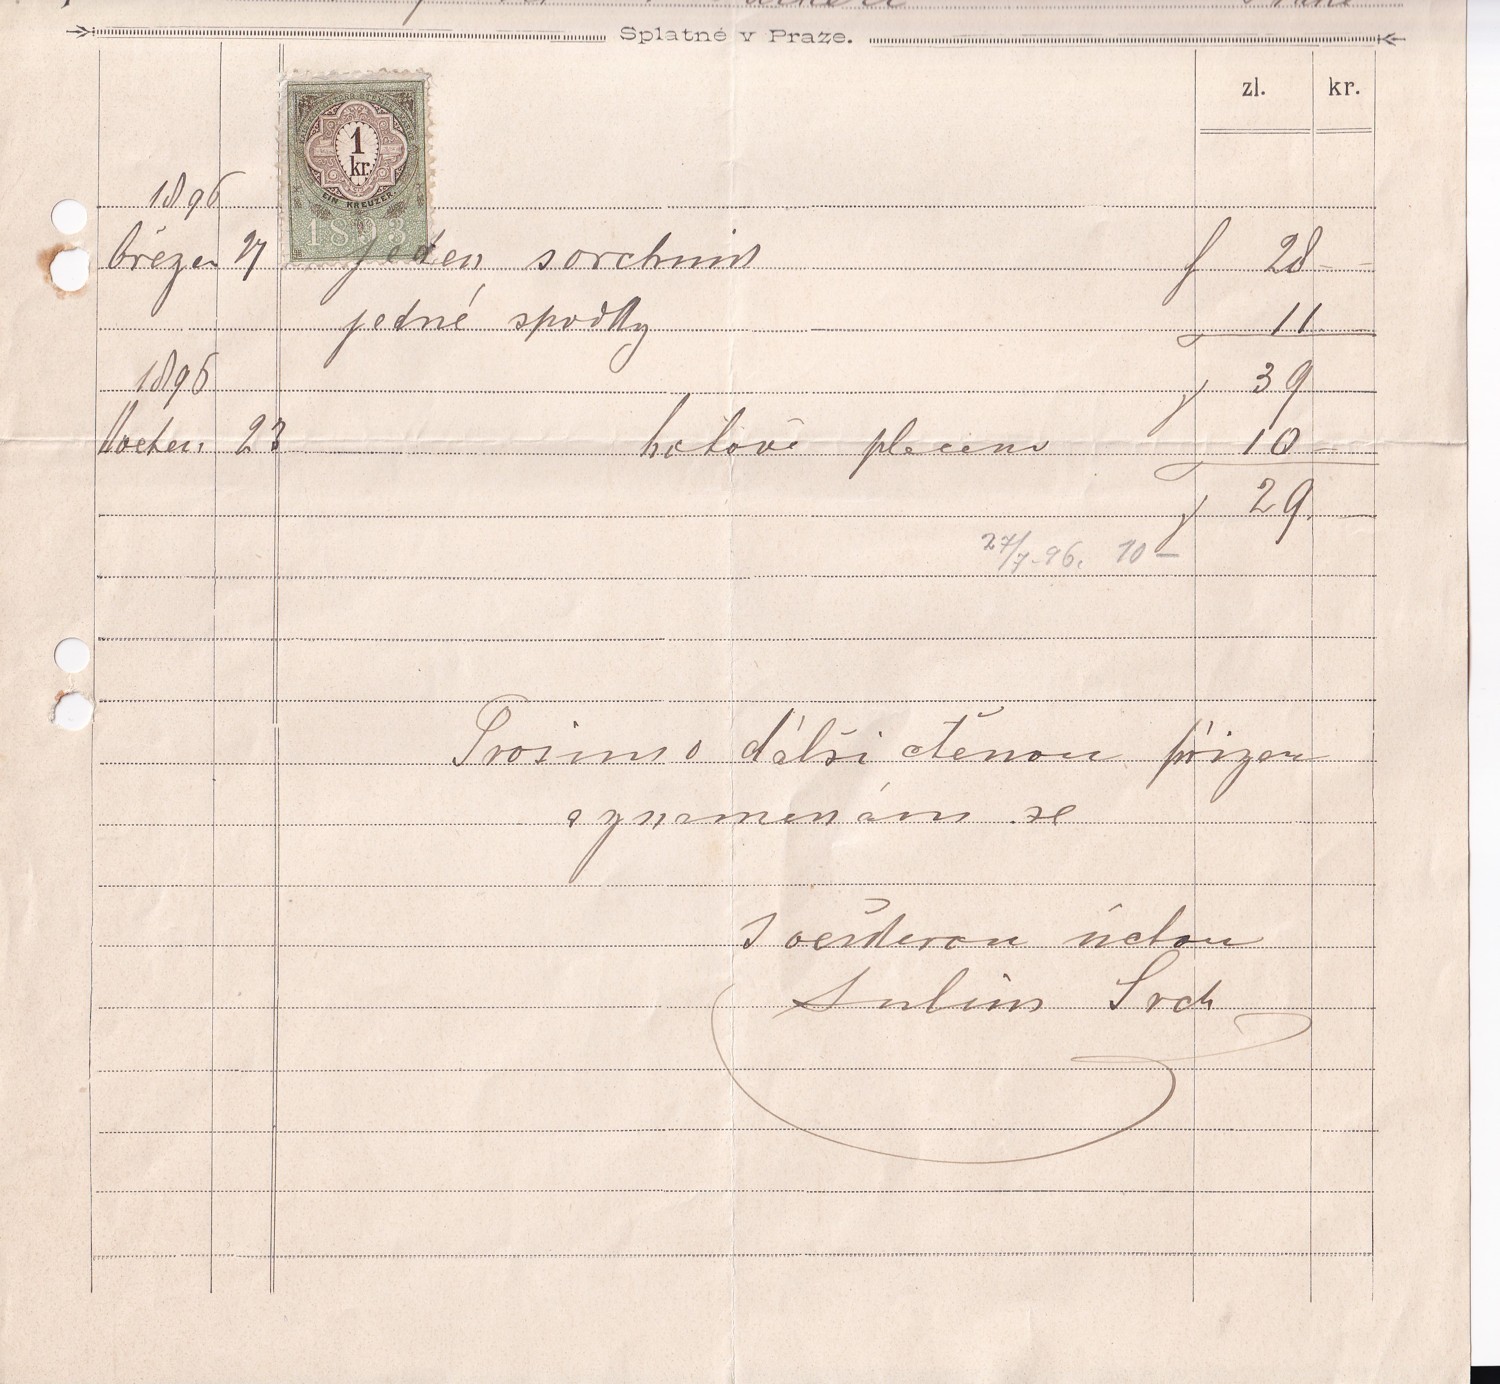 Splatné v Praze.
zl. kr.
1 kr.
EIN KREUZER.
1893
1896
březen 27 jeden svrchník f 28 —
jedné spodky 11 —
1896
39 —
23 hotově placeno 10 —
29 —
27/7 96. 10 —
Prosím o další ctěnou přízeň
a znamenám se
s veškerou úctou
Srch